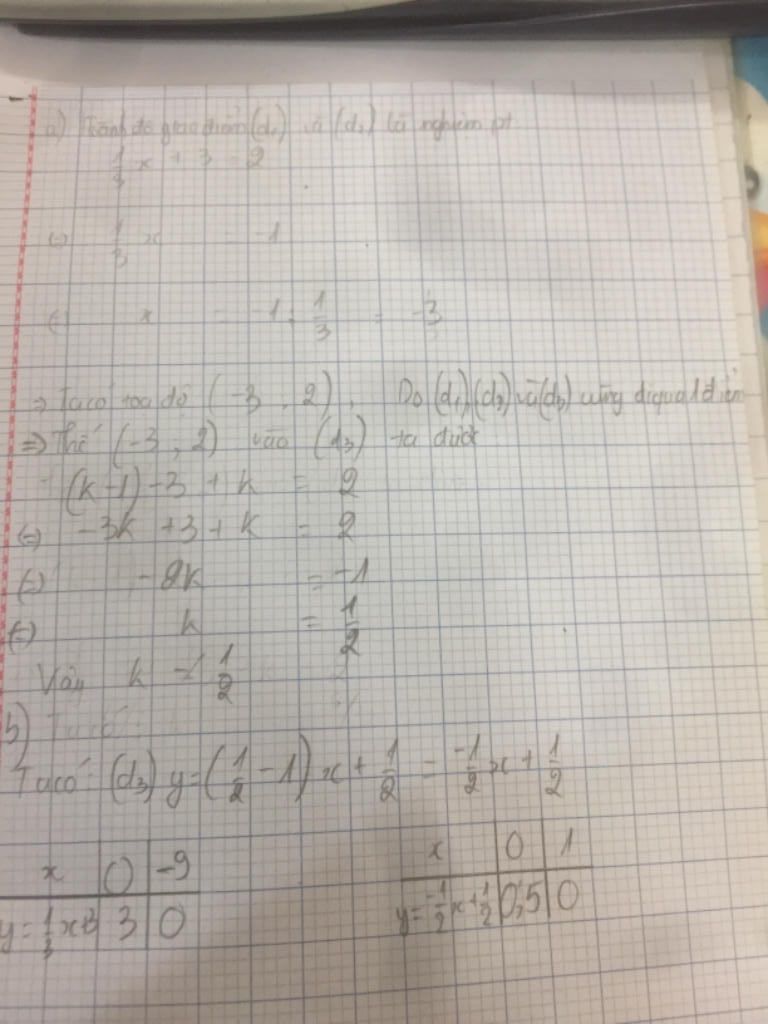 a) Hoành độ giao điểm (d₁) và (d₂) là nghiệm pt
1/3 x + 3 = 2
(=) 1/3 x = -1
(=) x = -1 : 1/3 = -3
=> Ta có toạ độ (-3, 2). Do (d₁)(d₂) và (d₃) cùng đi qua 1 điểm
=> Thế (-3, 2) vào (d₃) ta được
(k-1)-3 + k = 2
(=) -3k + 3 + k = 2
(=) -2k = -1
(=) k = 1/2
Vậy k = 1/2
b) Ta có
Ta có: (d₃) y = (1/2 - 1) x + 1/2 = -1/2 x + 1/2
x 0 -9
y = 1/3 x+3 3 0
x 0 1
y = -1/2 x + 1/2 0,5 0